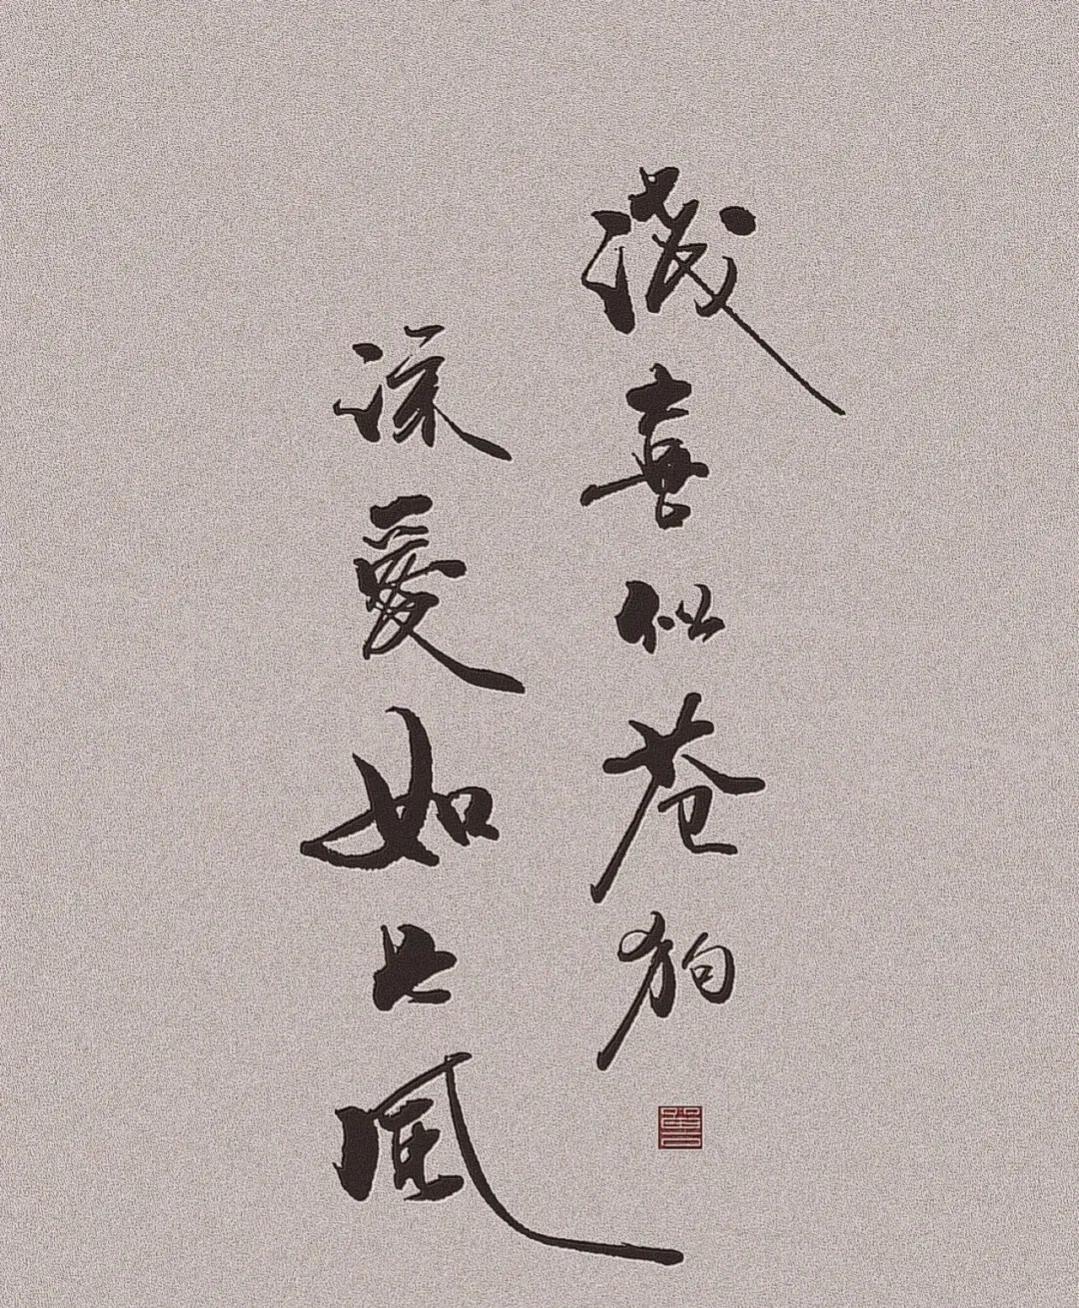 淺喜似苍狗
深愛如长風